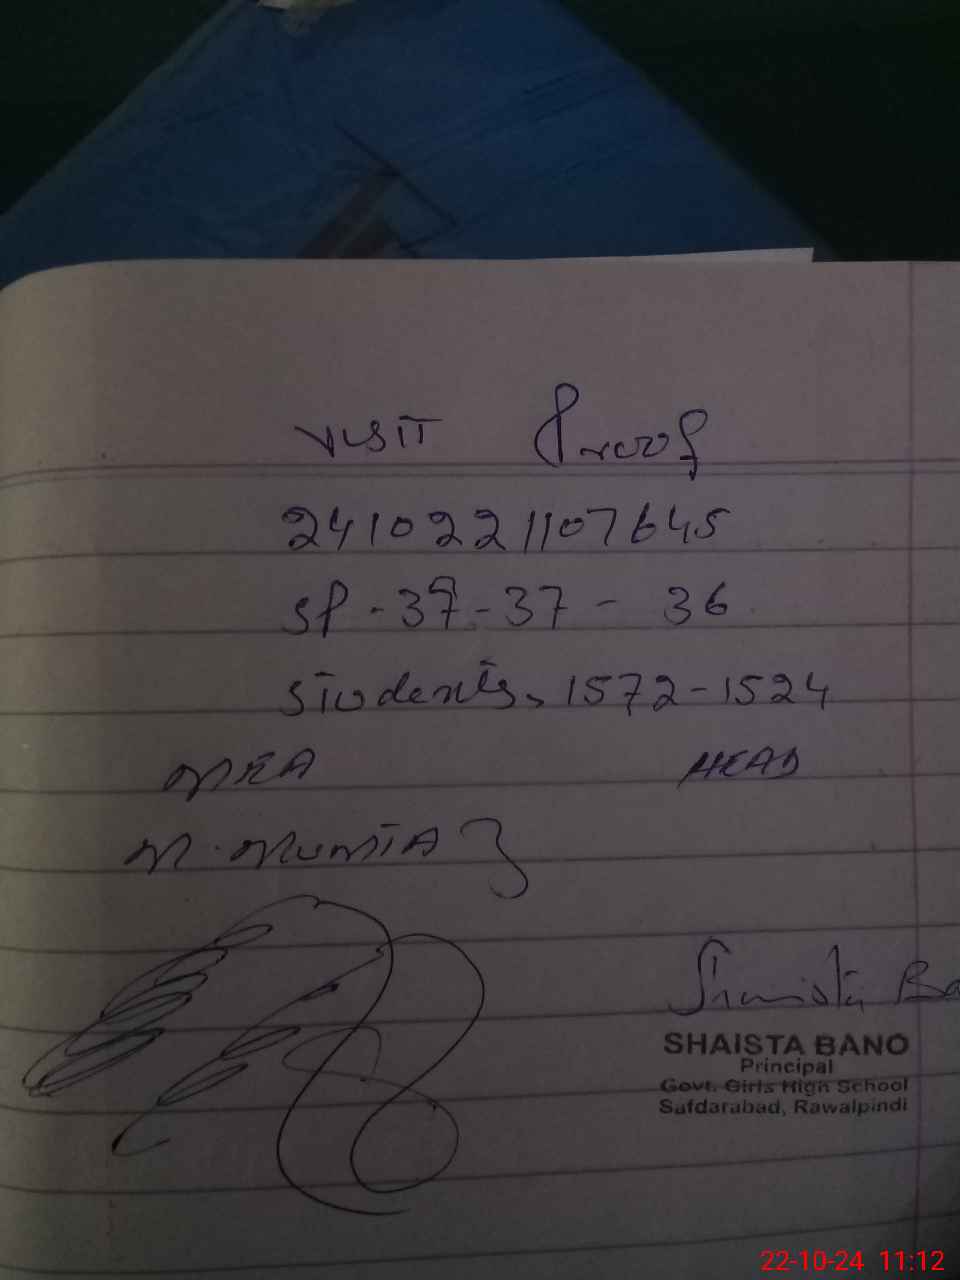 VISIT Proof
2410221107645
SP - 37 - 37 - 36
Students, 1572 - 1524
MEA HEAD
M. MUMTAZ
Shaista Ba
SHAISTA BANO
Principal
Govt. Girls High School
Safdarabad, Rawalpindi
22-10-24 11:12